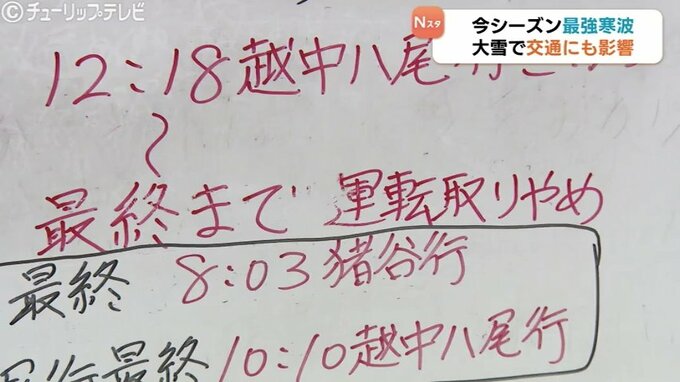 ©チューリップテレビ
Nスタ
今シーズン最強寒波
大雪で交通にも影響
12:18越中八尾
〜
最終まで 運転取りやめ
最終 8:03猪谷行
最終 10:10越中八尾行